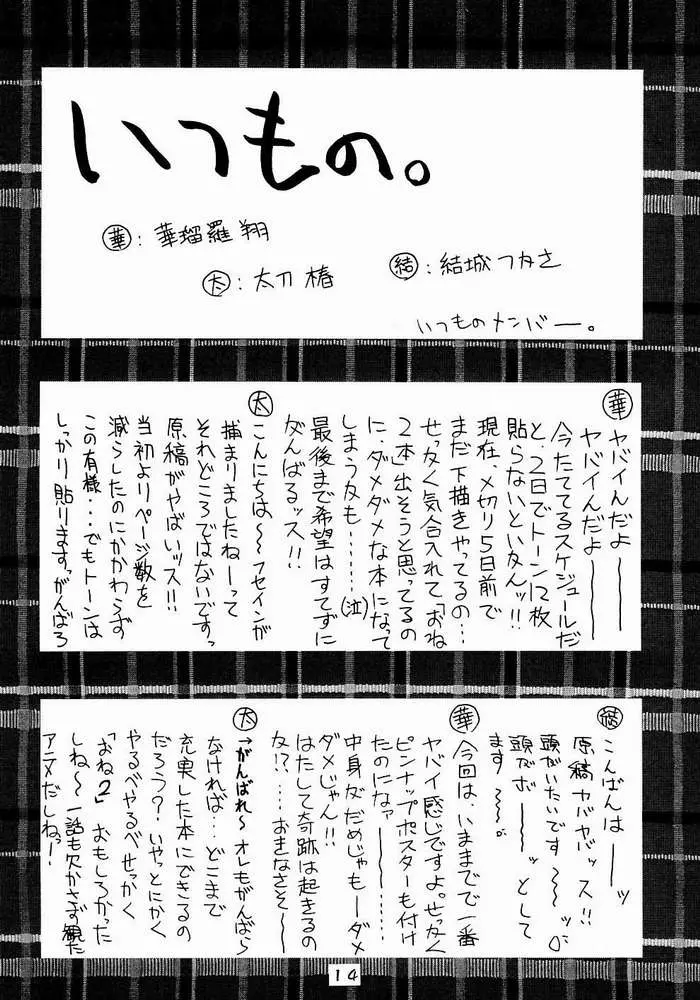 いつもの。
華：華瑠羅 翔
太：太刀 椿
結：結城つかさ
いつものメンバー。
華
ヤバイんだよ―――
ヤバイんだよ―――
今たててるスケジュールだ
と、2日でトーン12枚
貼らないといかんッ!!
現在、〆切り5日前で
まだ下描きやってるの…
せっかく気合入れて「おね
2本」出そうと思ってるの
に、ダメダメな本になって
しまうかも……(泣)
最後まで希望はすてずに
がんばるッス!!
太
こんにちは～～フセインが
捕まりましたねーって
それどころではないですっ
原稿がやばいッス!!
当初よりページ数を
減らしたのにかかわらず
この有様…でもトーンは
しっかり貼りますっがんばろ
結
こんばんは―ッ
原稿ヤバヤバッス!!
頭がいたいです～～ッ
頭がボ――ッとして
ます～～。
華
今回は、いままでで一番
ヤバイ感じですよ。せっかく
ピンナップポスターも付け
たのになァ―――……
中身がだめじゃもーダメ
ダメじゃん!!
はたして奇跡は起きるの
か!?…おきなさそ～～
太
→がんばれ～オレもがんばら
なければ…どこまで
充実した本にできるの
だろう?いやっとにかく
やるべやるべせっかく
「おね2」おもしろかった
しね～一話も欠かさず観た
アニメだしねっー!
14